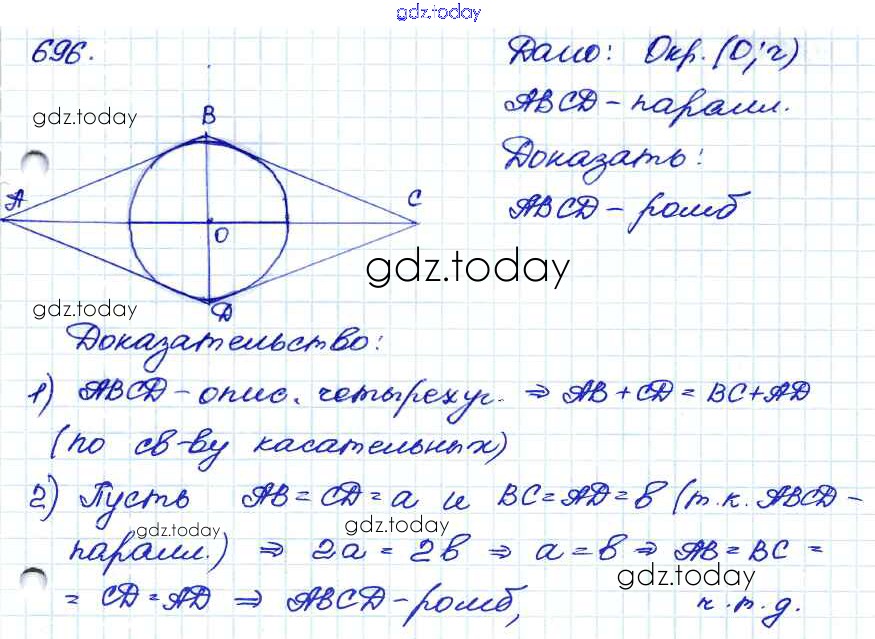 gdz.today
696.
Дано: Окр. (О; r)
gdz.today
ABCD - паралл.
B
Доказать:
A
C
ABCD - ромб
O
gdz.today
gdz.today
D
Доказательство:
1) ABCD - опис. четырехуг. ⇒ AB + CD = BC + AD
(по св-ву касательных)
2) Пусть AB = CD = a и BC = AD = b (т.к. ABCD -
gdz.today
gdz.today
паралл.) ⇒ 2a = 2b ⇒ a = b ⇒ AB = BC =
gdz.today
= CD = AD ⇒ ABCD - ромб, ч.т.д.